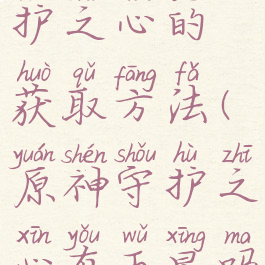 护之心的
huò qǔ fāng fǎ
获取方法(
yuán shén shǒu hù zhī
原神守护之
xīn yǒu wǔ xīng ma
心有五星吗